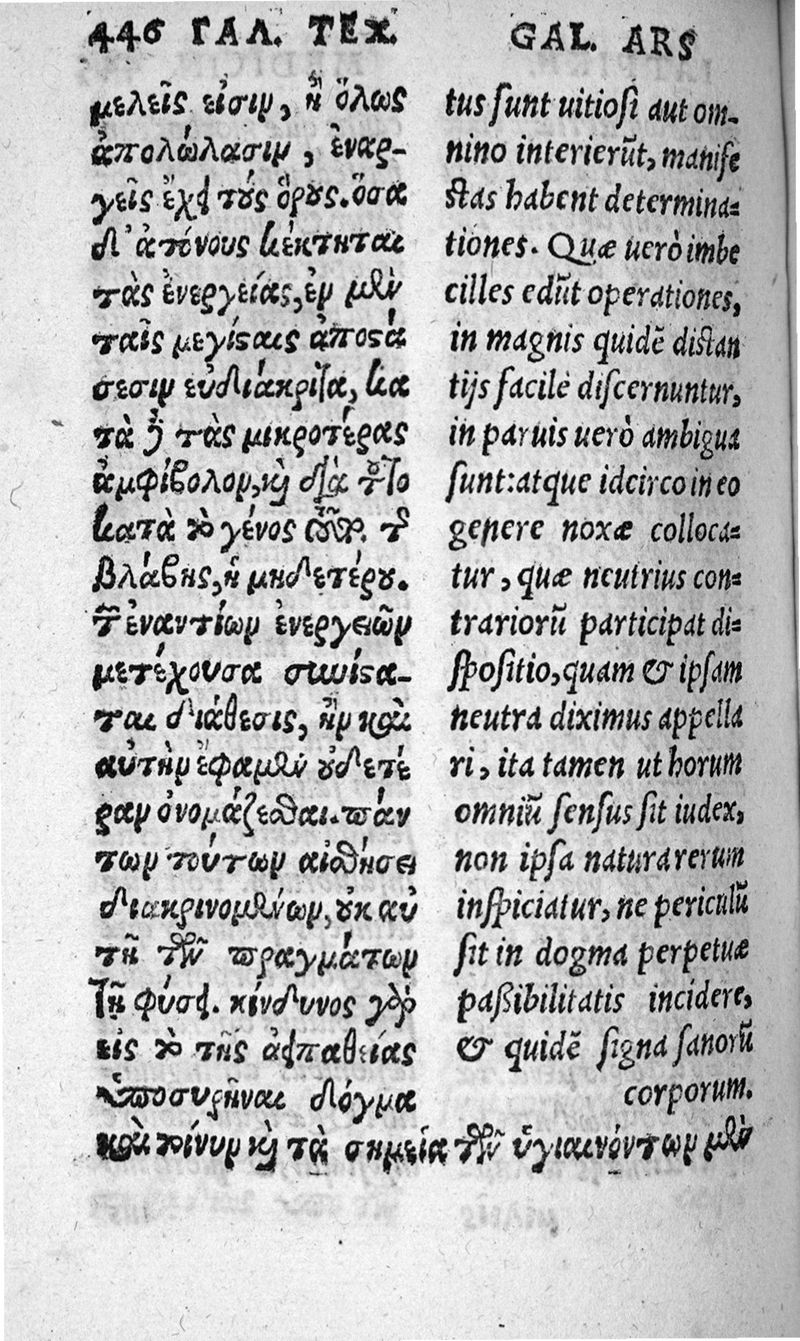 446 ΓΑΛ. ΤΕΧ.
μελεῖς εἰσιν, ἢ ὅλως
ἀπολώλασιν, ἐναρ-
γεῖς ἔχει τοὺς ὅρους. ὅσα
δ' ἀτόνους κέκτηται
τὰς ἐνεργείας, ἐν μὲν
ταῖς μεγίσταις ἀποστά
σεσιν εὐδιάκριτα, κα
τὰ δὲ τὰς μικροτέρας
ἀμφίβολον, καὶ διὰ τοῦτο
κατὰ τὸ γένος
βλάβης, ἢ μηδετέρου.
τῶν ἐναντίων ἐνεργειῶν
μετέχουσα συνίστα-
ται διάθεσις, ἣν καὶ
αὐτὴν ἔφαμεν οὐδετέ
ραν ὀνομάζεσθαι. πάν
των τούτων αἰσθήσει
διακρινομένων, οὐκ αὐ
τῇ τῶν πραγμάτων
τῇ φύσει. κίνδυνος γὰρ
εἰς τὸ τῆς ἀειπαθείας
ὑποσυρῆναι δόγμα
καὶ τοίνυν καὶ τὰ σημεῖα τῶν ὑγιαινόντων μὲν
GAL. ARS
tus sunt uitiosi aut om-
nino interierũt, manife
stas habent determina=
tiones. Quæ uerò imbe
cilles edũt operationes,
in magnis quidẽ distan
tijs facilè discernuntur,
in paruis uerò ambigua
sunt: atque idcirco in eo
genere noxæ colloca=
tur, quæ neutrius con=
trariorũ participat di=
spositio, quam & ipsam
neutrâ diximus appella
ri, ita tamen ut horum
omniũ sensus sit iudex,
non ipsa natura rerum
inspiciatur, ne periculũ
sit in dogma perpetuæ
paßibilitatis incidere,
& quidẽ signa sanorũ
corporum.